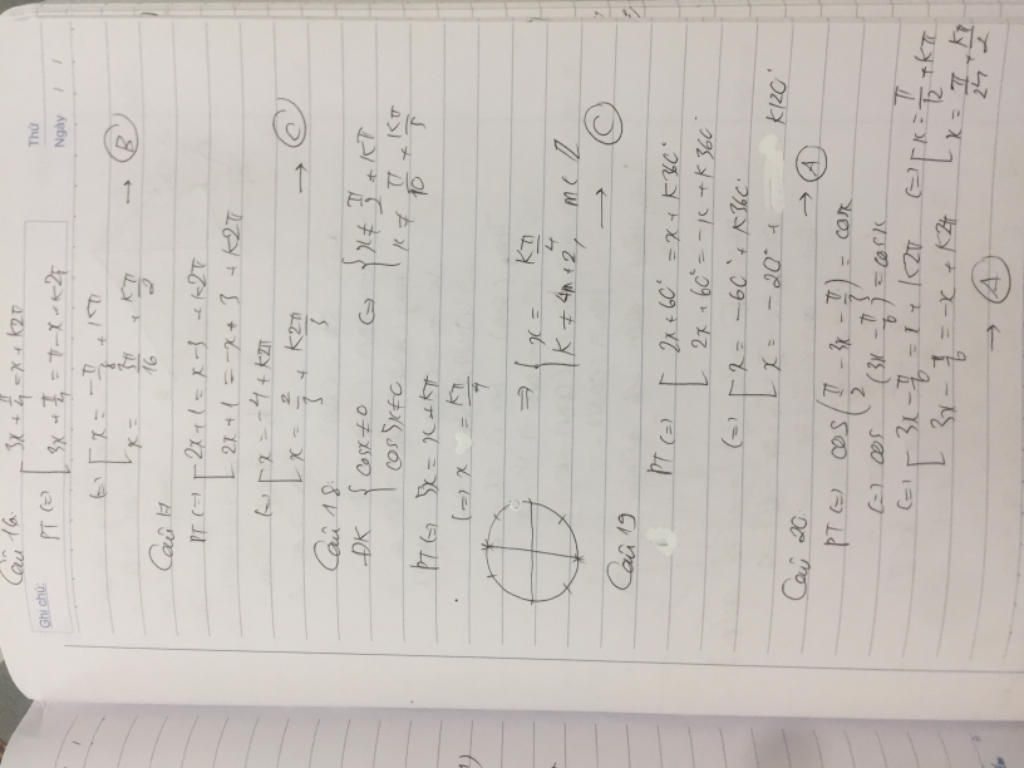 Thứ
Ngày
Ghi chú:
Câu 16:
PT (=) [ 3x + π/4 = x + K2π
[ 3x + π/4 = π - x + K2π
(=) [ x = -π/8 + Kπ
[ x = 3π/16 + Kπ/2 → (B)
Câu 17
PT (=) [ 2x + 1 = x - 3 + K2π
[ 2x + 1 = -x + 3 + K2π
(=) [ x = -4 + K2π
[ x = 2/3 + K2π/3 → (C)
Câu 18:
ĐK { cosx ≠ 0
{ cos5x ≠ 0 (=) { x ≠ π/2 + Kπ
{ x ≠ π/10 + Kπ/5
PT (=) 5x = x + Kπ
(=) x = Kπ/4
=> { x = Kπ/4
{ K ≠ 4m + 2, m ∈ Z → (C)
Câu 19
PT (=) [ 2x + 60° = x + K360°
[ 2x + 60° = -x + K360°
(=) [ x = -60° + K360°
[ x = -20° + K120° → (A)
Câu 20:
PT (=) cos(π/2 - 3x - π/3) = cosx
(=) cos (3x - π/6) = cosx
(=) [ 3x - π/6 = x + K2π
[ 3x - π/6 = -x + K2π (=) [ x = π/12 + Kπ
[ x = π/24 + Kπ/2
→ (A)